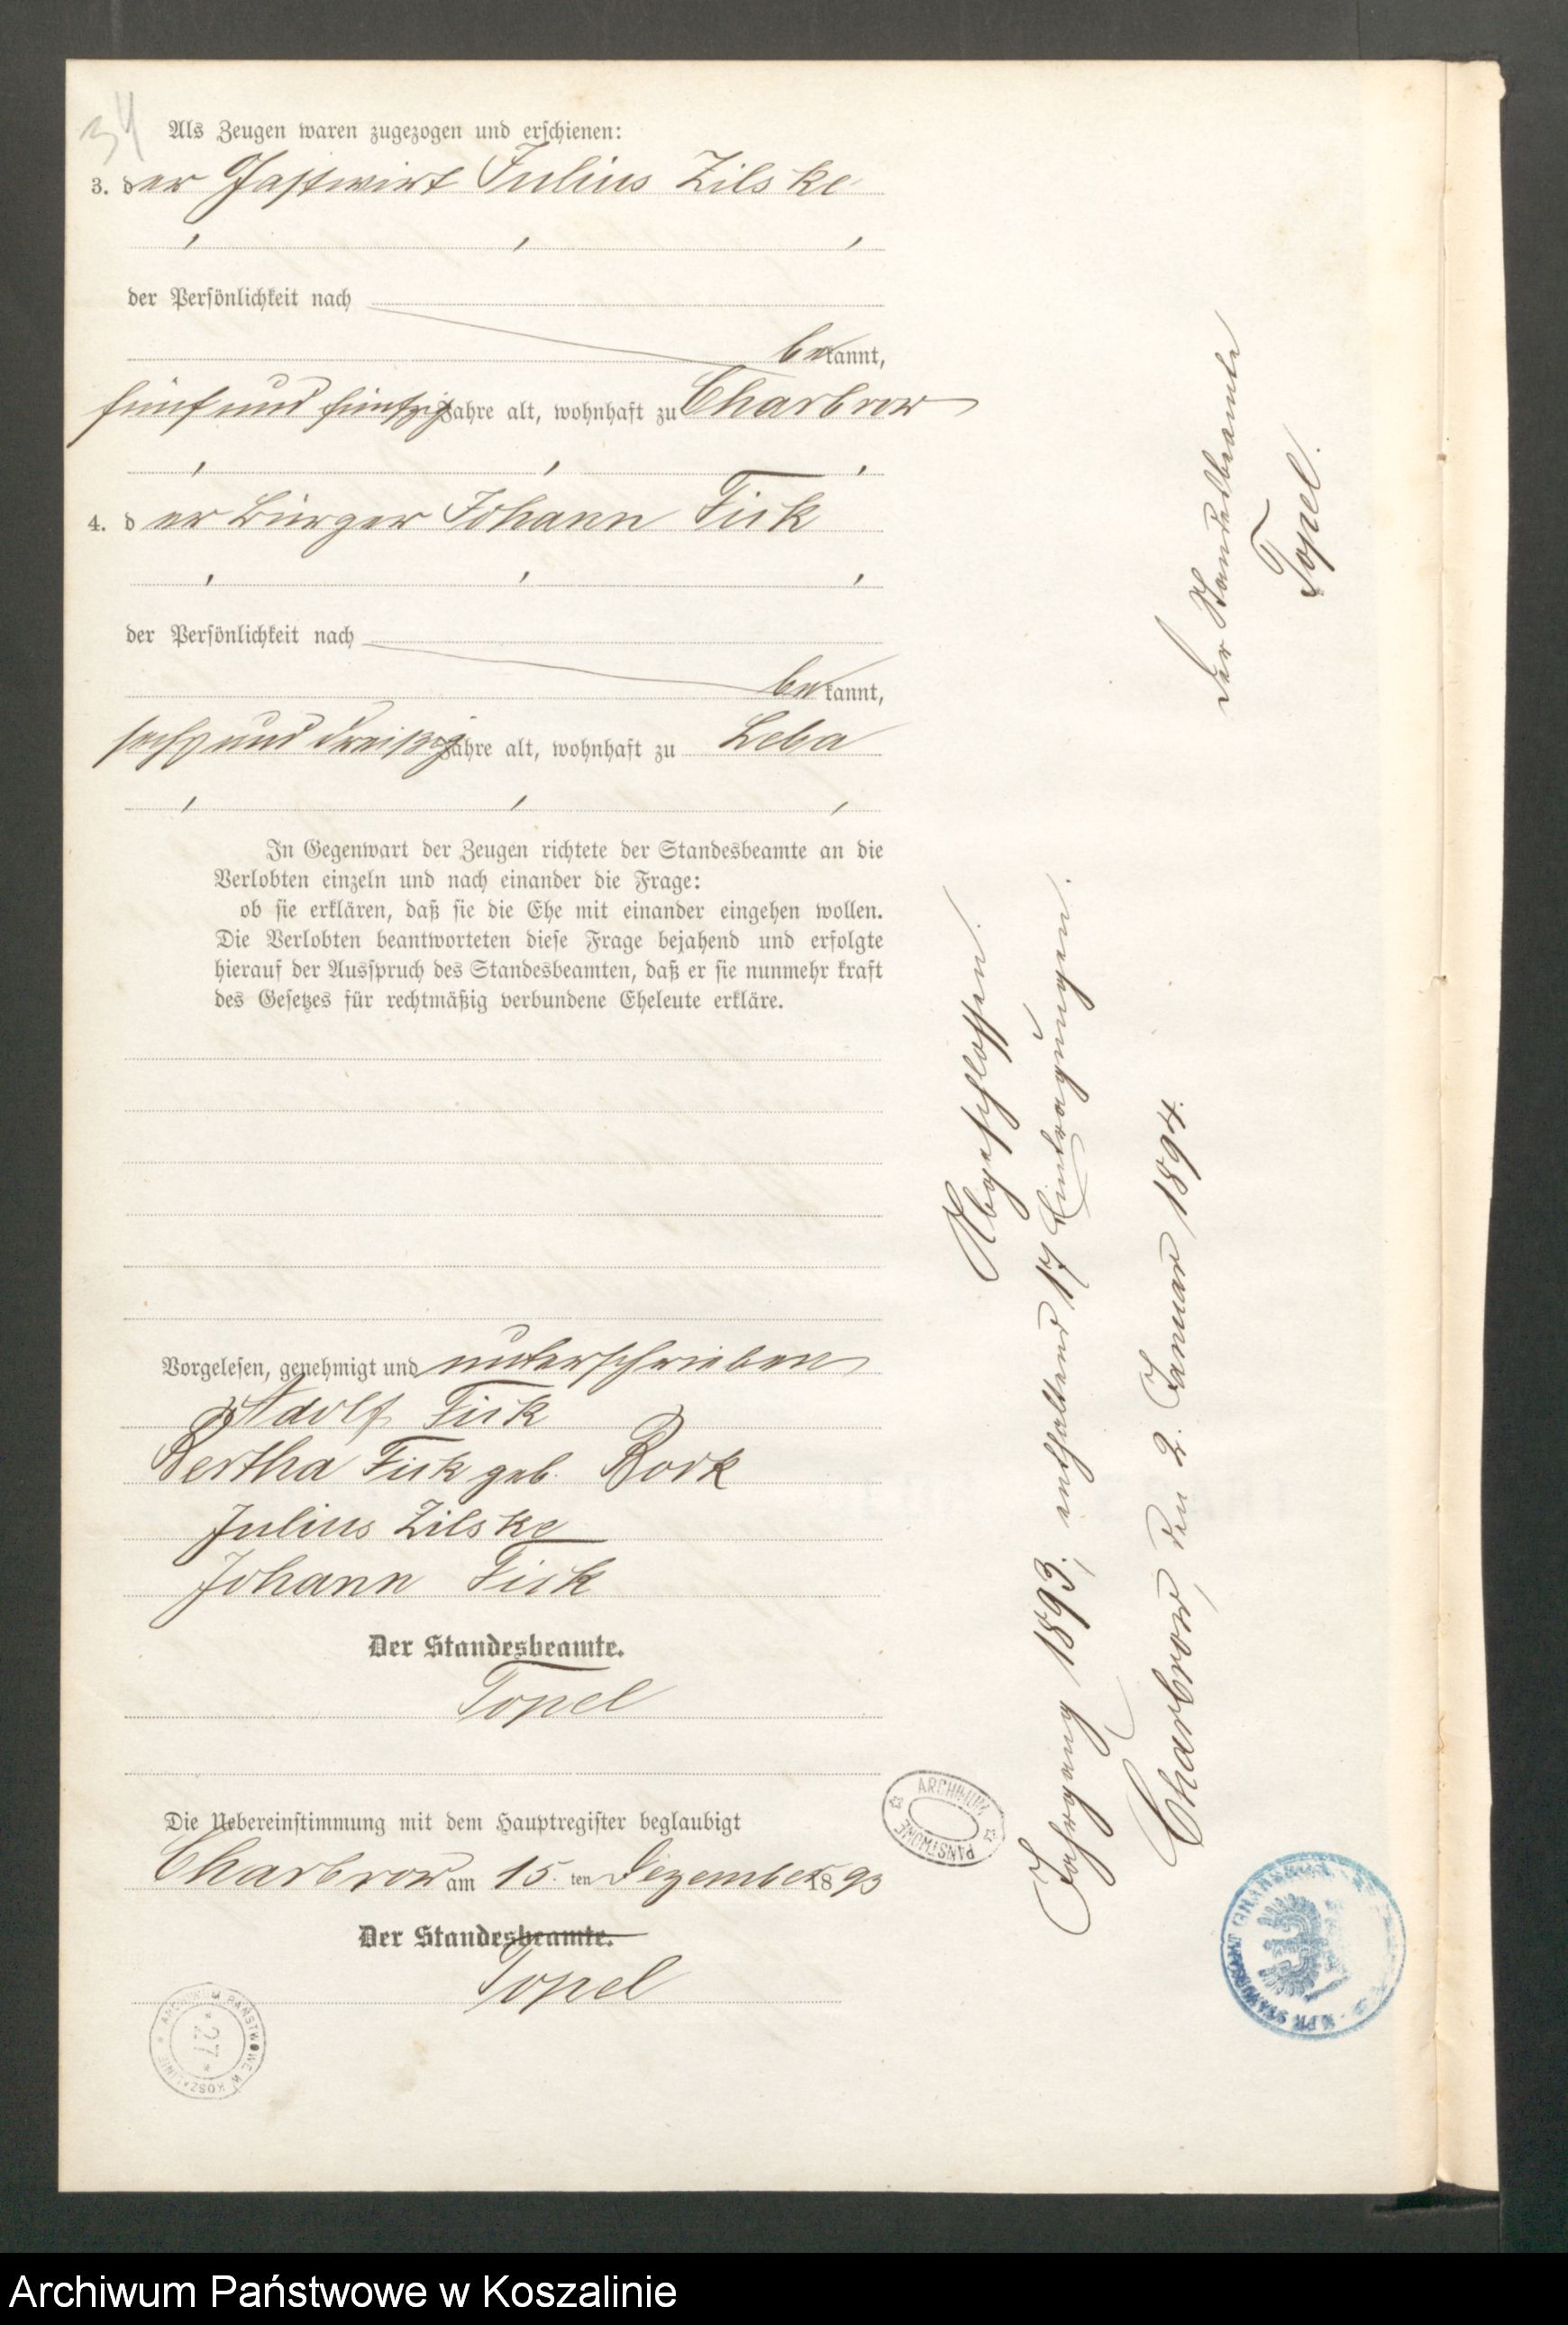 34
Als Zeugen waren zugezogen und erschienen:
3. der Gastwirt Julius Zilske
der Persönlichkeit nach
bekannt,
fünf und fünfzig Jahre alt, wohnhaft zu Charbrow
4. der Bürger Johann Fick
der Persönlichkeit nach
bekannt,
sechs und dreißig Jahre alt, wohnhaft zu Leba
In Gegenwart der Zeugen richtete der Standesbeamte an die
Verlobten einzeln und nach einander die Frage:
ob sie erklären, daß sie die Ehe mit einander eingehen wollen.
Die Verlobten beantworteten diese Frage bejahend und erfolgte
hierauf der Ausspruch des Standesbeamten, daß er sie nunmehr kraft
des Gesetzes für rechtmäßig verbundene Eheleute erkläre.
Vorgelesen, genehmigt und unterschrieben
Adolf Fick
Bertha Fick geb. Bork
Julius Zilske
Johann Fick
Der Standesbeamte.
Topel
Die Uebereinstimmung mit dem Hauptregister beglaubigt
Charbrow am 15. ten Dezember 1893
Der Standesbeamte.
Topel
Abgeschlossen.
Jahrgang 1893, enthaltend 17 Eintragungen.
Charbrow, den 2. Januar 1894.
Der Standesbeamte
Topel.
ARCHIWUM PAŃSTWOWE
ARCHIWUM PAŃSTWOWE W KOSZALINIE
27
Archiwum Państwowe w Koszalinie